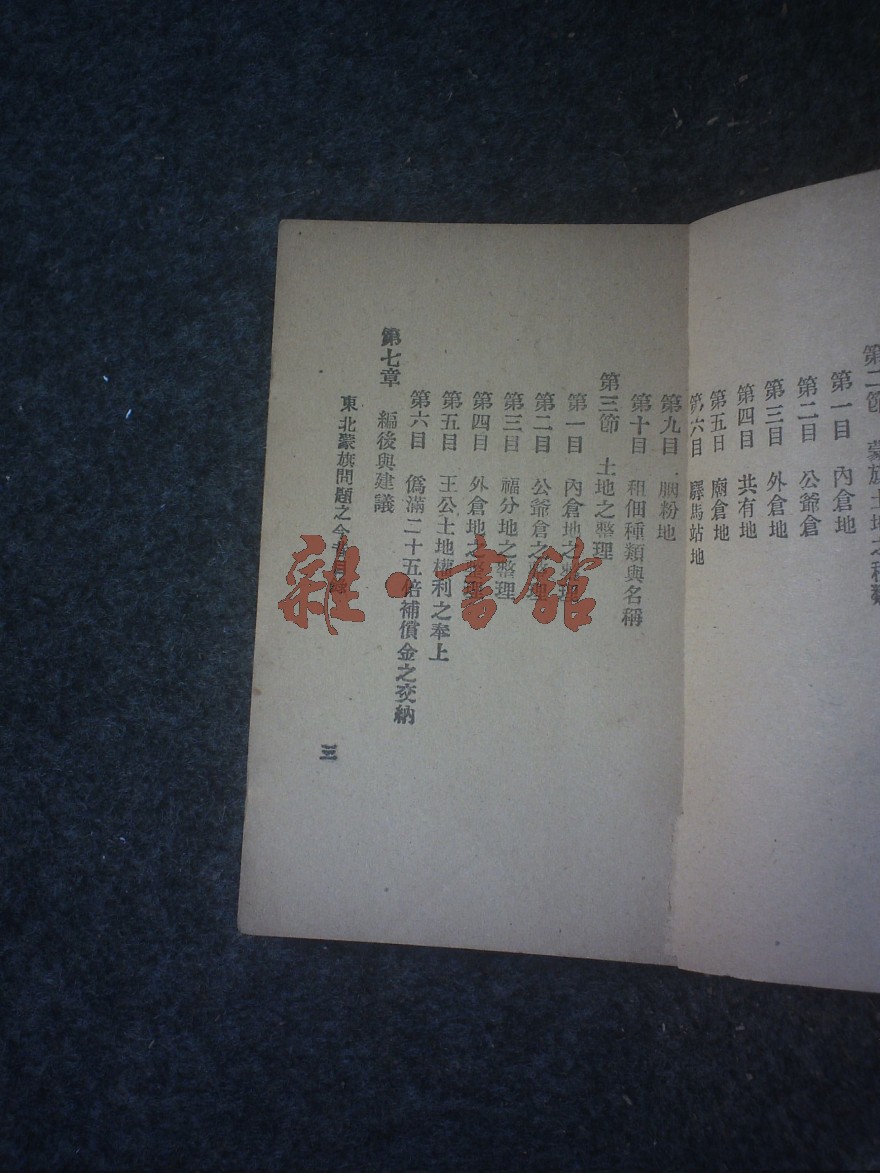 第二節 蒙旗土地之種類
第一目 內倉地
第二目 公爺倉
第三目 外倉地
第四目 共有地
第五目 廟倉地
第六目 驛馬站地
第九目 胭粉地
第十目 租佃種類與名稱
第三節 土地之整理
第一目 內倉地之整理
第二目 公爺倉之整理
第三目 福分地之整理
第四目 外倉地之整理
第五目 王公土地權利之奉上
第六目 僞滿二十五倍補償金之交納
第七章 編後與建議
東北蒙旗問題之今昔目錄
三
雜·書館